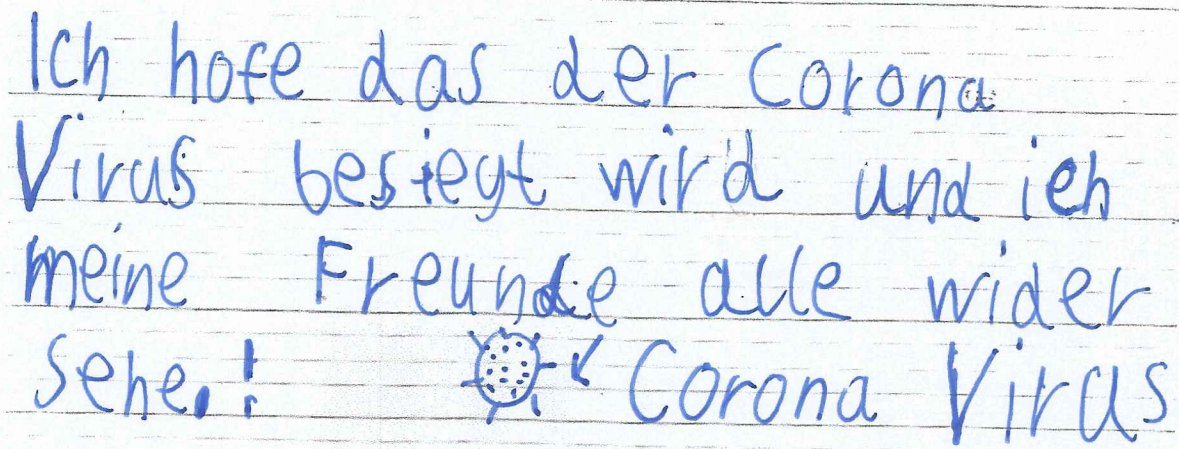 Ich hofe das der Corona
Virus besiegt wird und ich
meine Freunde alle wider
sehe.!
Corona Virus